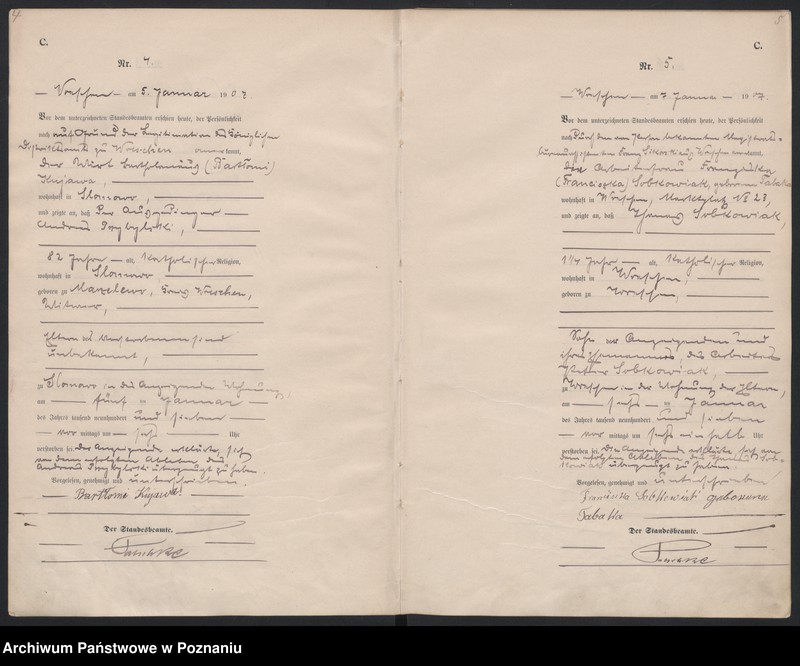 4
C.
Nr. 4.
Wreschen am 5. Januar 1907.
Vor dem unterzeichneten Standesbeamten erschien heute, der Persönlichkeit
nach auf Grund der Legitimation des Königlichen
Distriktsamts zu Wreschen kannt,
der Wirt Bartholomäus (Bartłomi)
Kujawa,
wohnhaft in Slonowo,
und zeigte an, daß der Auszuginger
Andreas Przybylski,
82 Jahre alt, katholischer Religion,
wohnhaft in Slonowo
geboren zu Kreis Wreschen,
Witwer,
Eltern des Verstorbenen sind
unbekannt,
zu Slonowo in des Anzeigenden Wohnung,
am fünf ten Januar
des Jahres tausend neunhundert und sieben
vor mittags um Uhr
verstorben sei. Der Anzeigende erklärte, sich
von dem erfolgten Ableben des
Andreas Przybylski überzeugt zu haben.
Vorgelesen, genehmigt und unterschrieben.
Bartłomi Kujawa
Der Standesbeamte.
5
C.
Nr. 5.
Wreschen am 7. Januar 1907.
Vor dem unterzeichneten Standesbeamten erschien heute, der Persönlichkeit
nach durch den
Franz Wreschen kannt,
die Arbeiterfrau Franziska
(Franciszka) Sobkowiak, geborene Tabatka
wohnhaft in Wreschen, Marktplatz No 23,
und zeigte an, daß Thomas Sobkowiak,
1 1/4 Jahr alt, katholischer Religion,
wohnhaft in Wreschen,
geboren zu Wreschen,
Sohn der Anzeigenden und
ihres Ehemannes, des Arbeiters
Sobkowiak,
zu Wreschen in der Wohnung der Eltern,
am sechs ten Januar
des Jahres tausend neunhundert und sieben
vor mittags um Uhr
verstorben sei. Die Anzeigende erklärte sich von
dem erfolgten Ableben des Thomas Sob-
kowiak überzeugt zu haben.
Vorgelesen, genehmigt und unterschrieben
Franciszka Sobkowiak geborena
Tabatka
Der Standesbeamte.
Archiwum Państwowe w Poznaniu